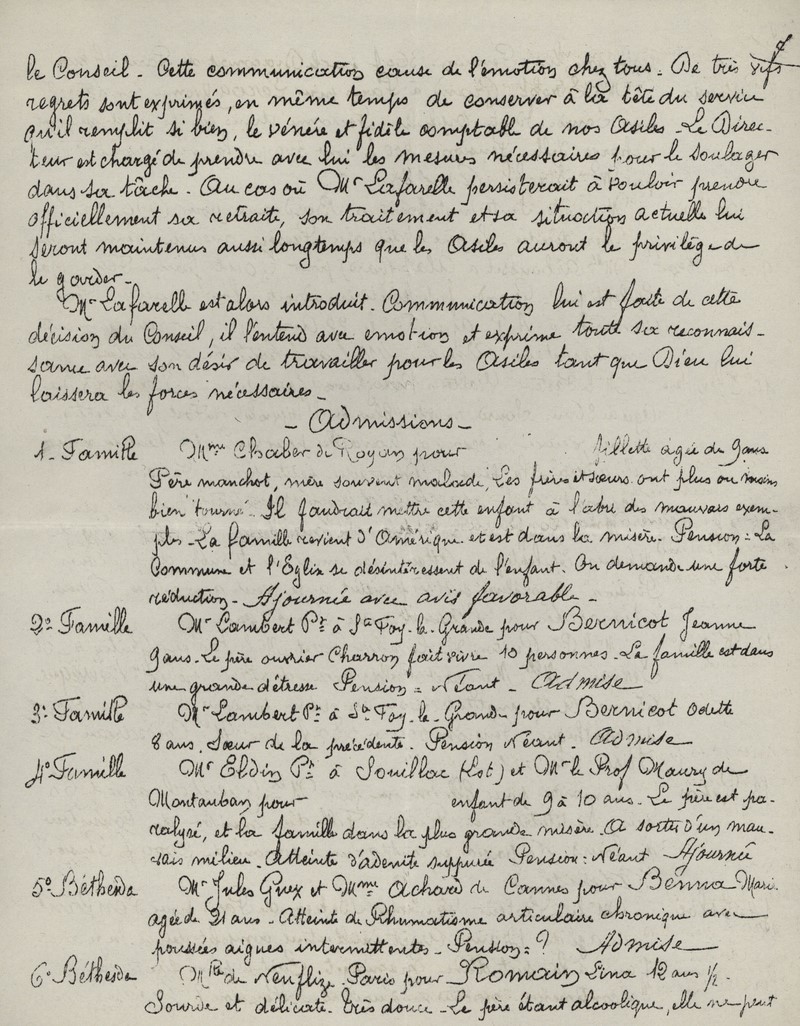 7
le Conseil. Cette communication cause de l'émotion chez tous. De très vifs
regrets sont exprimés, en même temps de conserver à la tête du service
qu'il remplit si bien, le vénéré et fidèle comptable de nos Asiles. Le Direc-
teur est chargé de prendre avec lui les mesures nécessaires pour le soulager
dans sa tâche. Au cas où Mr Lafarelle persisterait à vouloir prendre
officiellement sa retraite, son traitement et sa situation actuelle lui
seront maintenus aussi longtemps que les Asiles auront le privilège de
le garder.
Mr Lafarelle est alors introduit. Communication lui est faite de cette
décision du Conseil, il l'entend avec émotion et exprime toute sa reconnais-
sance avec son désir de travailler pour les Asiles tant que Dieu lui
laissera les forces nécessaires.
- Admissions -
1- Famille Mme Chaber de Royan pour fillette agée de 9 ans
Père manchot, mère souvent malade, Les frères et sœurs ont plus ou moins
bien "tourné". Il faudrait mettre cette enfant à l'abri des mauvais exem-
ples. La famille revient d'Amérique et est dans la misère. Pension: La
Commune et l'Eglise se désintéressent de l'enfant. On demande une forte
réduction. Ajournée avec avis favorable -
2° Famille Mr Lambert Pr à Ste Foy-la-Grande pour Bernicot Jeanne
9 ans. Le père ouvrier Charron fait vivre 10 personnes. La famille est dans
une grande détresse Pension = Néant - Admise
3° Famille Mr Lambert Pr à Ste Foy-la-Grande pour Bernicot Odette
8 ans. Sœur de la précédente. Pension Néant. Admise
4° Famille Mr Eldin Pr à Souillac (Lot) et Mr le Prof Maury de
Montauban pour enfant de 9 à 10 ans. Le père est pa-
ralysé, et la famille dans la plus grande misère. A sortir d'un mau-
vais milieu. Atteinte d'adenite suppurée Pension: Néant Ajournée
5° Béthesda Mr Jules Guex et Mme Achard de Cannes pour Benna Marie
agée de 21 ans. Atteinte de Rhumatisme articulaire chronique avec
poussées aigues intermittentes. Pension = ? Admise
6° Béthesda Mlle de Neuflize. Paris pour Romain Lina 12 ans ½.
Sourde et délicate. Très douce. Le père étant alcoolique, elle ne peut